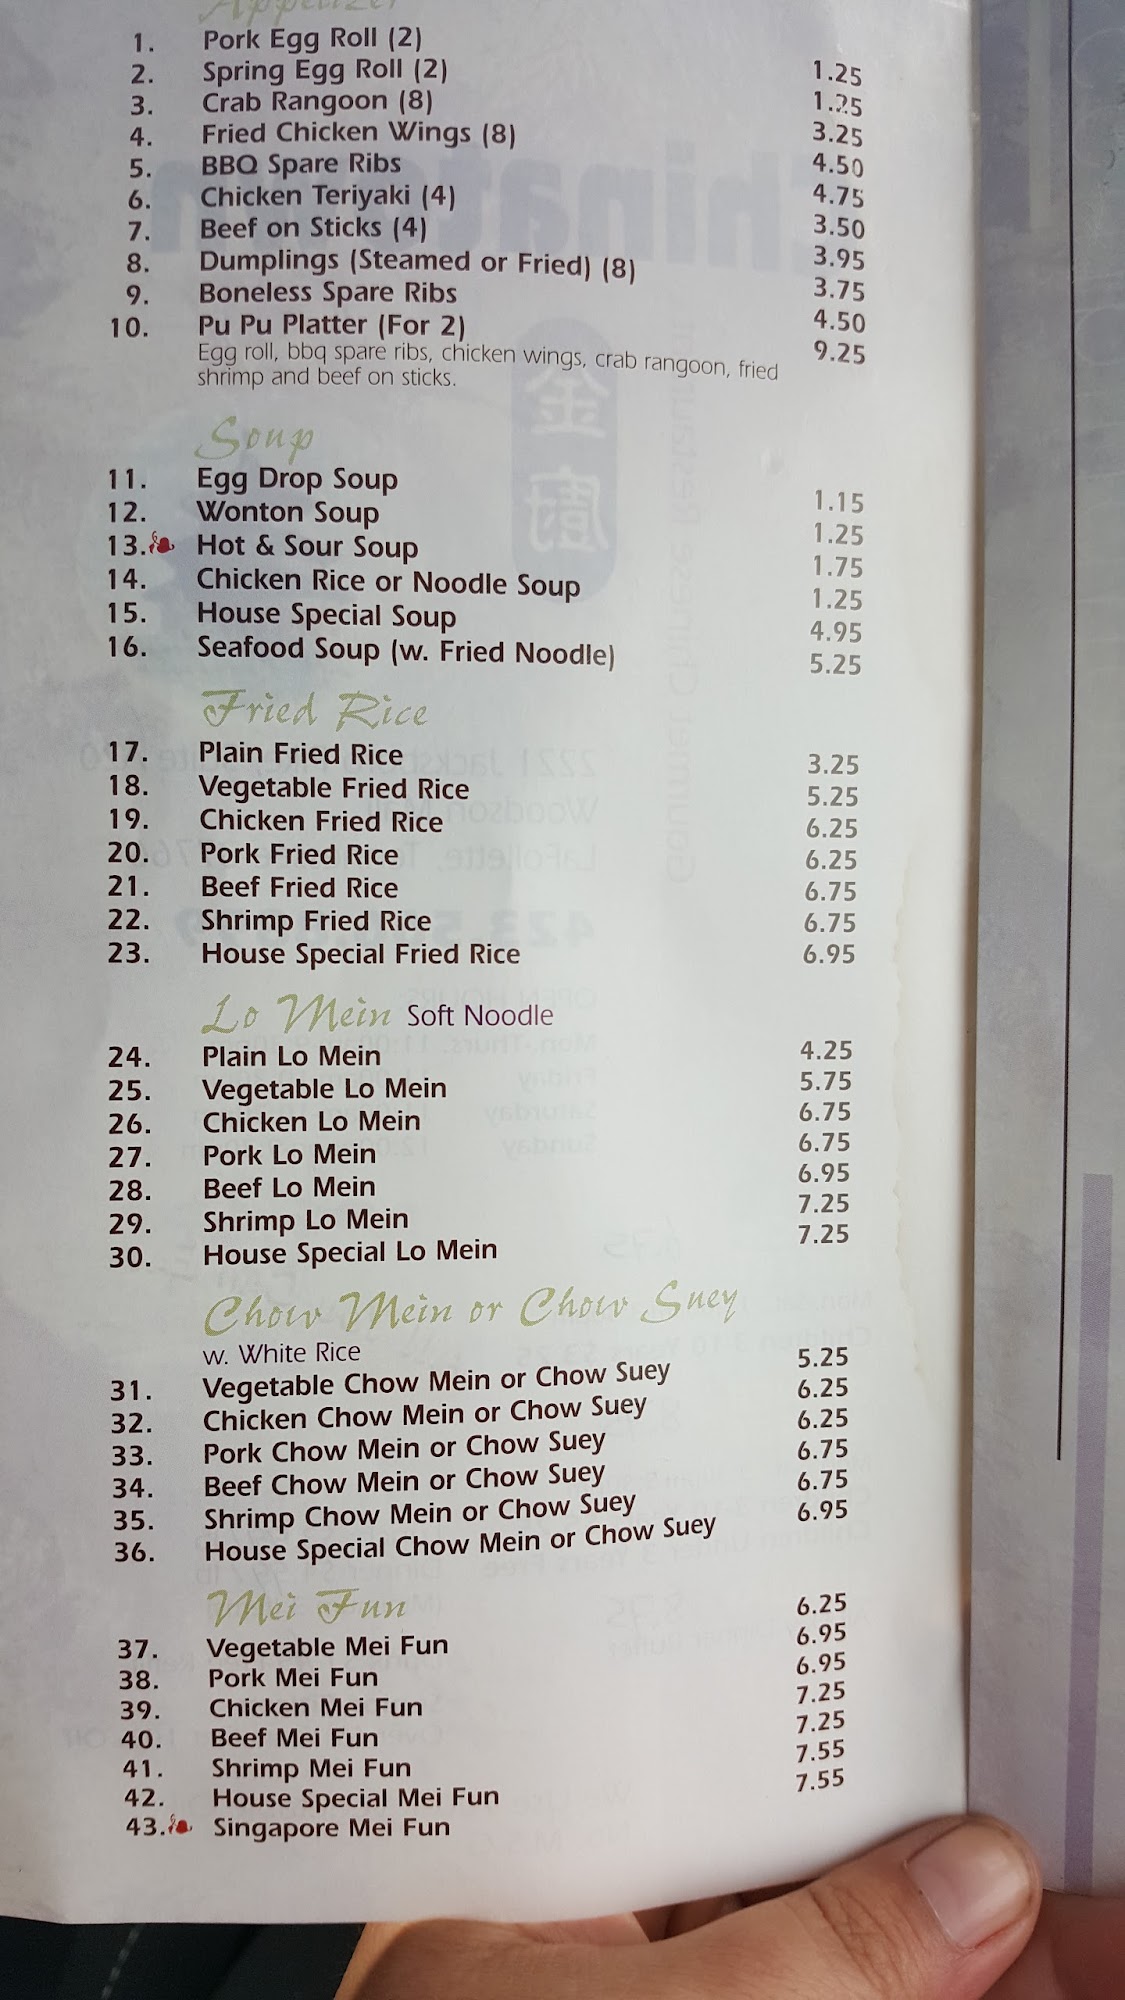 Appetizer
1. Pork Egg Roll (2) 1.25
2. Spring Egg Roll (2) 1.25
3. Crab Rangoon (8) 3.25
4. Fried Chicken Wings (8) 4.50
5. BBQ Spare Ribs 4.75
6. Chicken Teriyaki (4) 3.50
7. Beef on Sticks (4) 3.95
8. Dumplings (Steamed or Fried) (8) 3.75
9. Boneless Spare Ribs 4.50
10. Pu Pu Platter (For 2) 9.25
Egg roll, bbq spare ribs, chicken wings, crab rangoon, fried
shrimp and beef on sticks.
Soup
11. Egg Drop Soup 1.15
12. Wonton Soup 1.25
13. Hot & Sour Soup 1.75
14. Chicken Rice or Noodle Soup 1.25
15. House Special Soup 4.95
16. Seafood Soup (w. Fried Noodle) 5.25
Fried Rice
17. Plain Fried Rice 3.25
18. Vegetable Fried Rice 5.25
19. Chicken Fried Rice 6.25
20. Pork Fried Rice 6.25
21. Beef Fried Rice 6.75
22. Shrimp Fried Rice 6.75
23. House Special Fried Rice 6.95
Lo Mein Soft Noodle
24. Plain Lo Mein 4.25
25. Vegetable Lo Mein 5.75
26. Chicken Lo Mein 6.75
27. Pork Lo Mein 6.75
28. Beef Lo Mein 6.95
29. Shrimp Lo Mein 7.25
30. House Special Lo Mein 7.25
Chow Mein or Chow Suey
w. White Rice
31. Vegetable Chow Mein or Chow Suey 5.25
32. Chicken Chow Mein or Chow Suey 6.25
33. Pork Chow Mein or Chow Suey 6.25
34. Beef Chow Mein or Chow Suey 6.75
35. Shrimp Chow Mein or Chow Suey 6.75
36. House Special Chow Mein or Chow Suey 6.95
Mei Fun
37. Vegetable Mei Fun 6.25
38. Pork Mei Fun 6.95
39. Chicken Mei Fun 6.95
40. Beef Mei Fun 7.25
41. Shrimp Mei Fun 7.25
42. House Special Mei Fun 7.55
43. Singapore Mei Fun 7.55